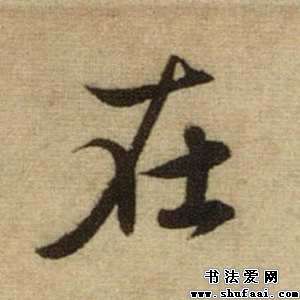 在
书法爱网
www.shufaai.com